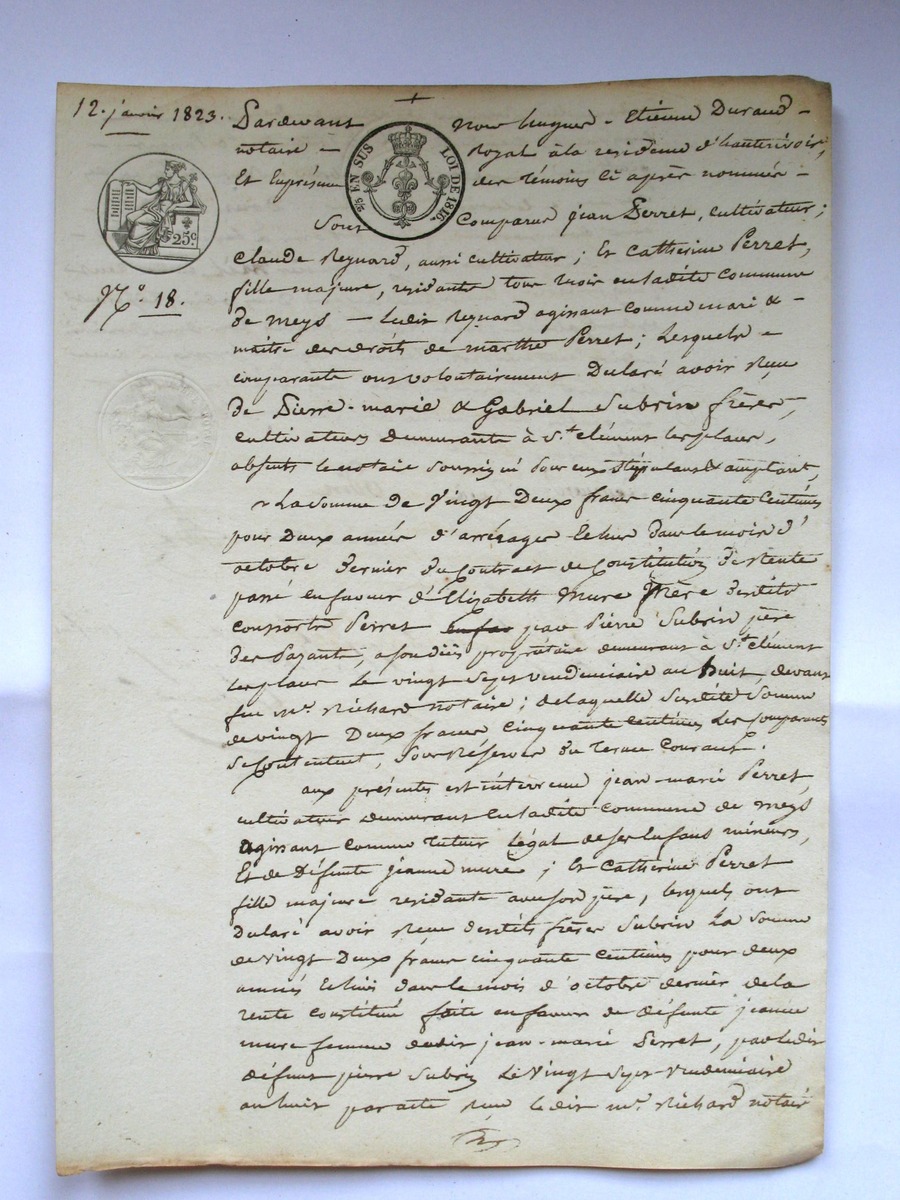 12. janvier 1823.
25 EN SUS LOI DE 1816.
25c
N.o 18.
Pardevant Nous Etienne Durand
notaire - Royal à la residence d'hauterivoire,
Et En présence des témoins Ci après nommés -
Sont Comparus jean Perret, cultivateur;
Claude Reynard, aussi cultivateur; Et Catherine Perret,
fille majeure, residants tous trois en ladite Commune
de Meys - Ledit Reynard agissant comme mari & -
maitre des droits de marthe Perret; Lesquels -
comparants ont volontairement Déclaré avoir Reçu
de Pierre-marie & Gabriel Subrin frères,
cultivateurs demeurants à S.t clément les places,
absents le notaire soussigné pour eux stipulant & acceptant,
La somme de Vingt Deux francs cinquante Centimes
pour Deux années d'arrérages Echus Dans le mois d'
octobre dernier du Contract de Constitution de Rente
passé en faveur d'Elizabeth Mure Mère desdits
Consorts Perret enfav par Pierre Subrin père
des Payants, a son décès propriétaire demeurant à S.t Clément
les places Le vingt Sept Vendemiaire an huit, devant
feu M.e Richard notaire; de laquelle susdite Somme
de vingt Deux francs Cinquante Centimes Les Comparants
se Contentent, Sous Réserve du terme Courant.
aux présentes est intervenu jean-marie Perret,
cultivateur demeurant en ladite Commune de Meys
agissant comme tuteur Légal de ses Enfans mineurs,
Et de Défunte jeanne mure; Et Catherine Perret
fille majeure residante avec son père, lesquels ont
Déclaré avoir Reçu desdits frères Subrin La Somme
de Vingt Deux francs cinquante centimes pour deux
années Echues dans le mois d'octobre dernier de la
rente constitué faite en faveur de défunte jeanne
mure femme dudit jean-marie Perret, par ledit
défunt pierre Subrin Le Vingt Sept Vendemiaire
an huit par acte Reçu ledit M.e Richard notaire